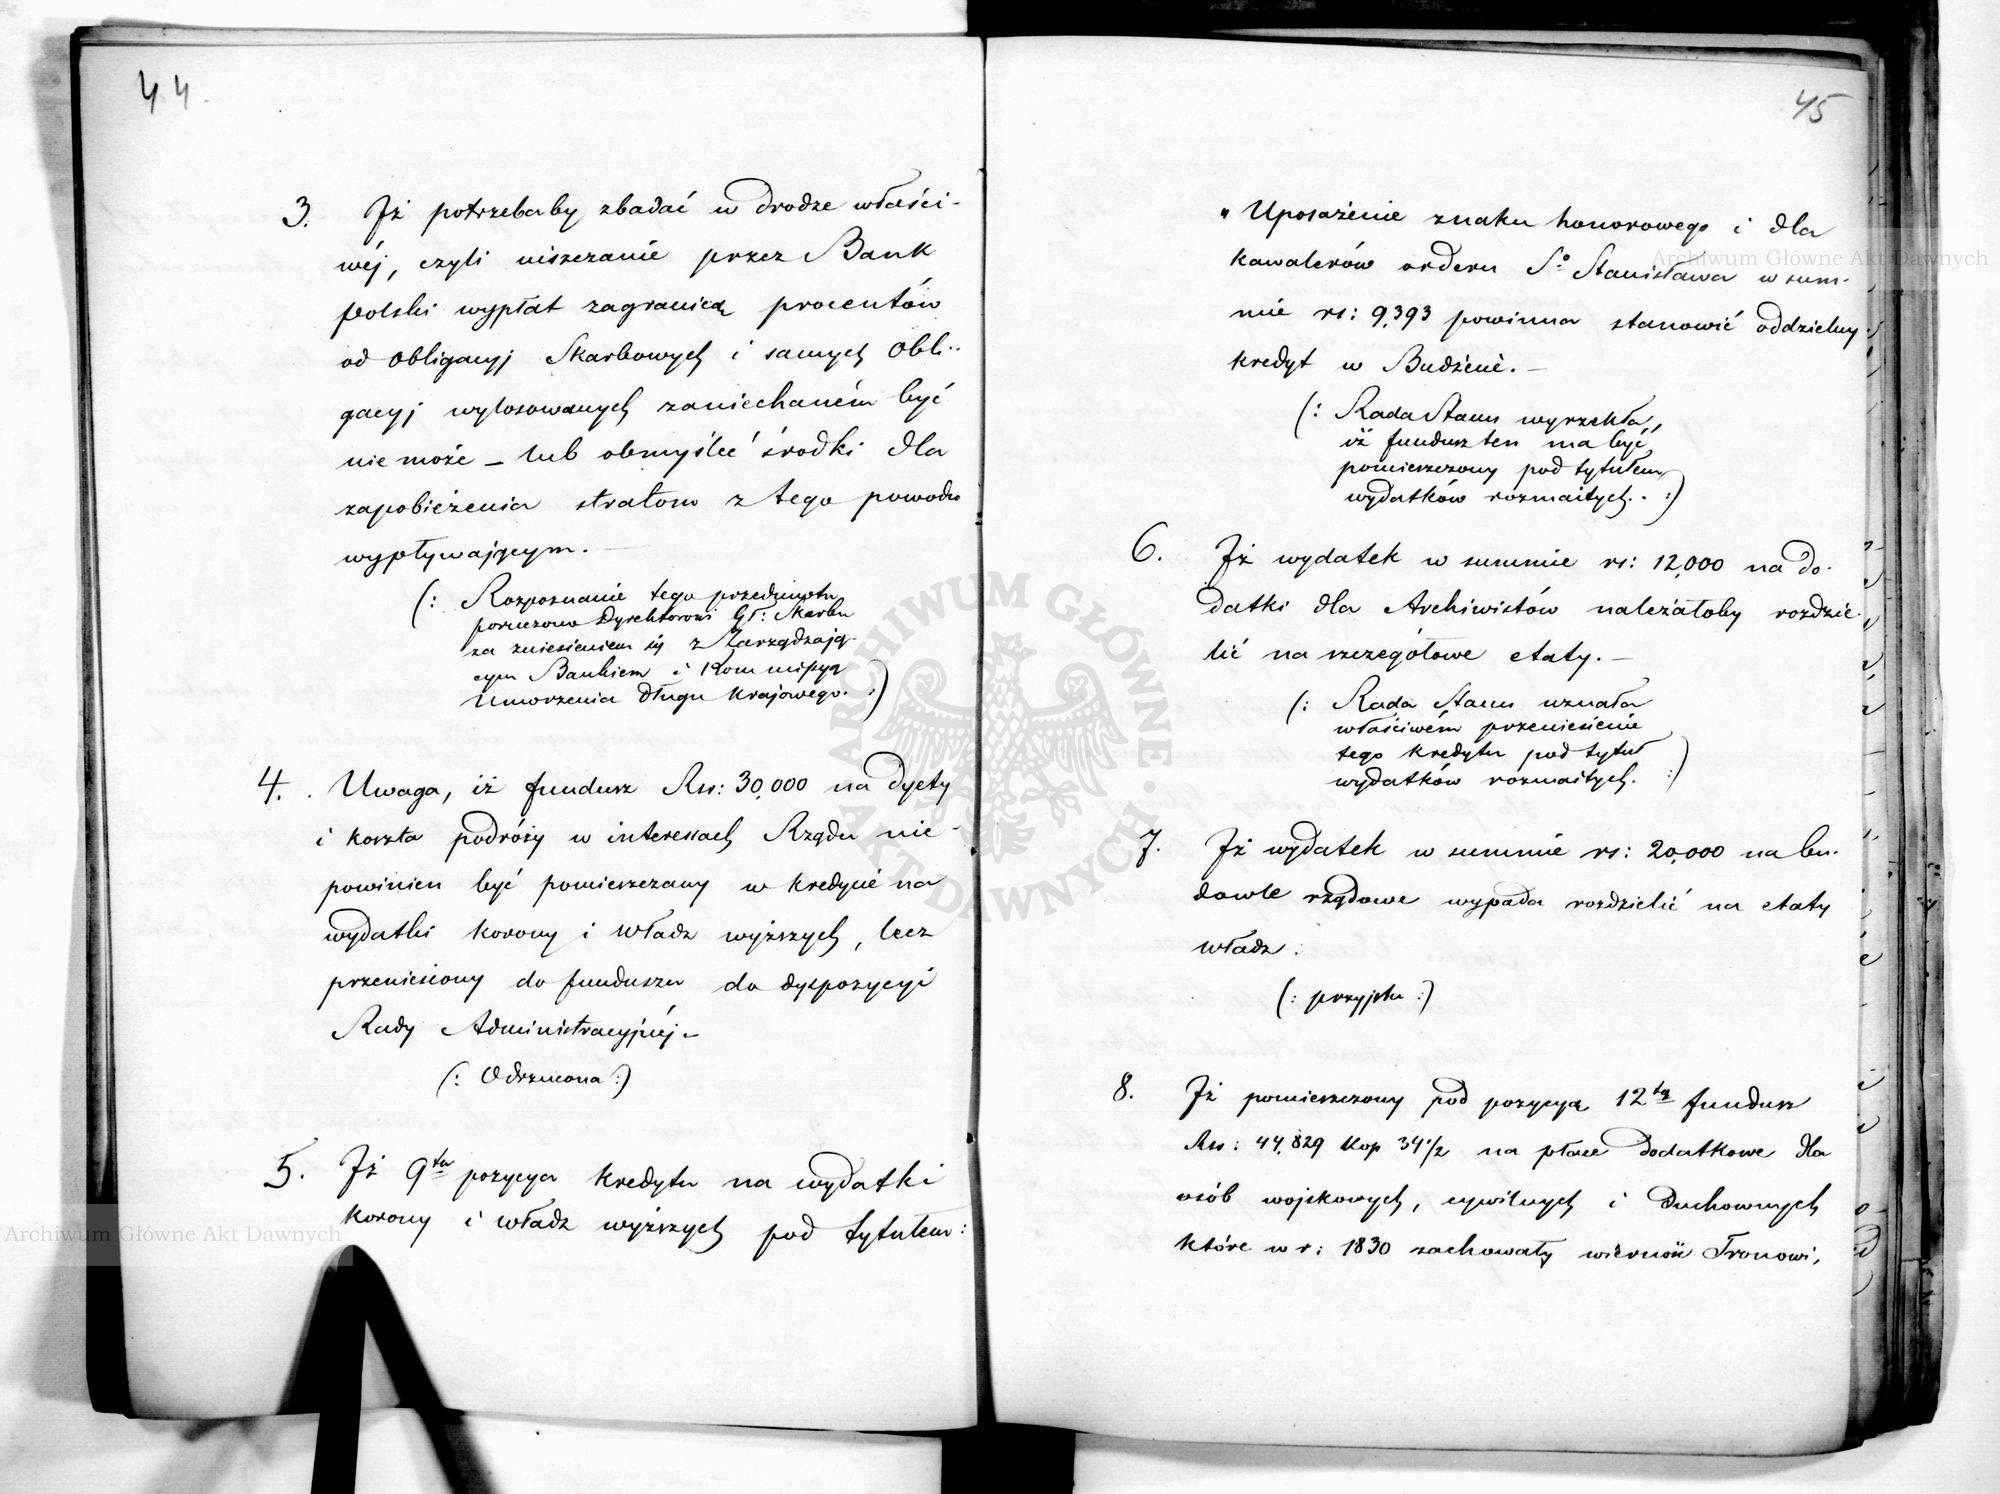 44.
3. Iż potrzebaby zbadać w drodze właści-
wéj, czyli uiszczanie przez Bank
polski wypłat zagranicą procentów
od obligacyj Skarbowych i samych obli-
gacyj wylosowanych zaniechaném być
nie może – lub obmyśleć środki dla
zapobieżenia stratom z tego powodu
wypływającym. –
(: Rozpoznanie tego przedmiotu
poruczono Dyrektorowi Gł: Skarbu
za zniesieniem się z Zarządzają-
cym Bankiem i Kommissyą
Umorzenia długu krajowego. :)
4. Uwaga, iż fundusz Rsr: 30,000 na dyety
i koszta podróży w interessach Rządu nie-
powinien być pomieszczany w kredycie na
wydatki korony i władz wyższych, lecz
przeniesiony do funduszu do dyspozycyi
Rady Administracyjnéj –
(: Odrzucona :)
5. Iż 9ta pozycya kredytu na wydatki
korony i władz wyższych pod tytułem:
45
"Uposażenie znaku honorowego i dla
kawalerów orderu Sgo Stanisława w sum-
mie rs: 9,393 powinna stanowić oddzielny
kredyt w Budżecie. –
(: Rada Stanu wyrzekła,
iż fundusz ten ma być
pomieszczony pod tytułem
wydatków rozmaitych. :)
6. Iż wydatek w summie rs: 12,000 na do-
datki dla Archiwistów należałoby rozdzie-
lić na szczegółowe etaty. –
(: Rada Stanu uznała
właściwém przeniesienie
tego kredytu pod tytuł
wydatków rozmaitych. :)
7. Iż wydatek w summie rs: 20,000 na bu-
dowle rządowe wypada rozdzielić na etaty
władz.
(: przyjęta :)
8. Iż pomieszczony pod pozycyą 12tą fundusz
Rsr: 44,829 kop 34 1/2 na płace dodatkowe dla
osób wojskowych, cywilnych i duchownych
które w r: 1830 zachowały wierność Tronowi,
Archiwum Główne Akt Dawnych
Archiwum Główne Akt Dawnych
ARCHIWUM GŁÓWNE AKT DAWNYCH